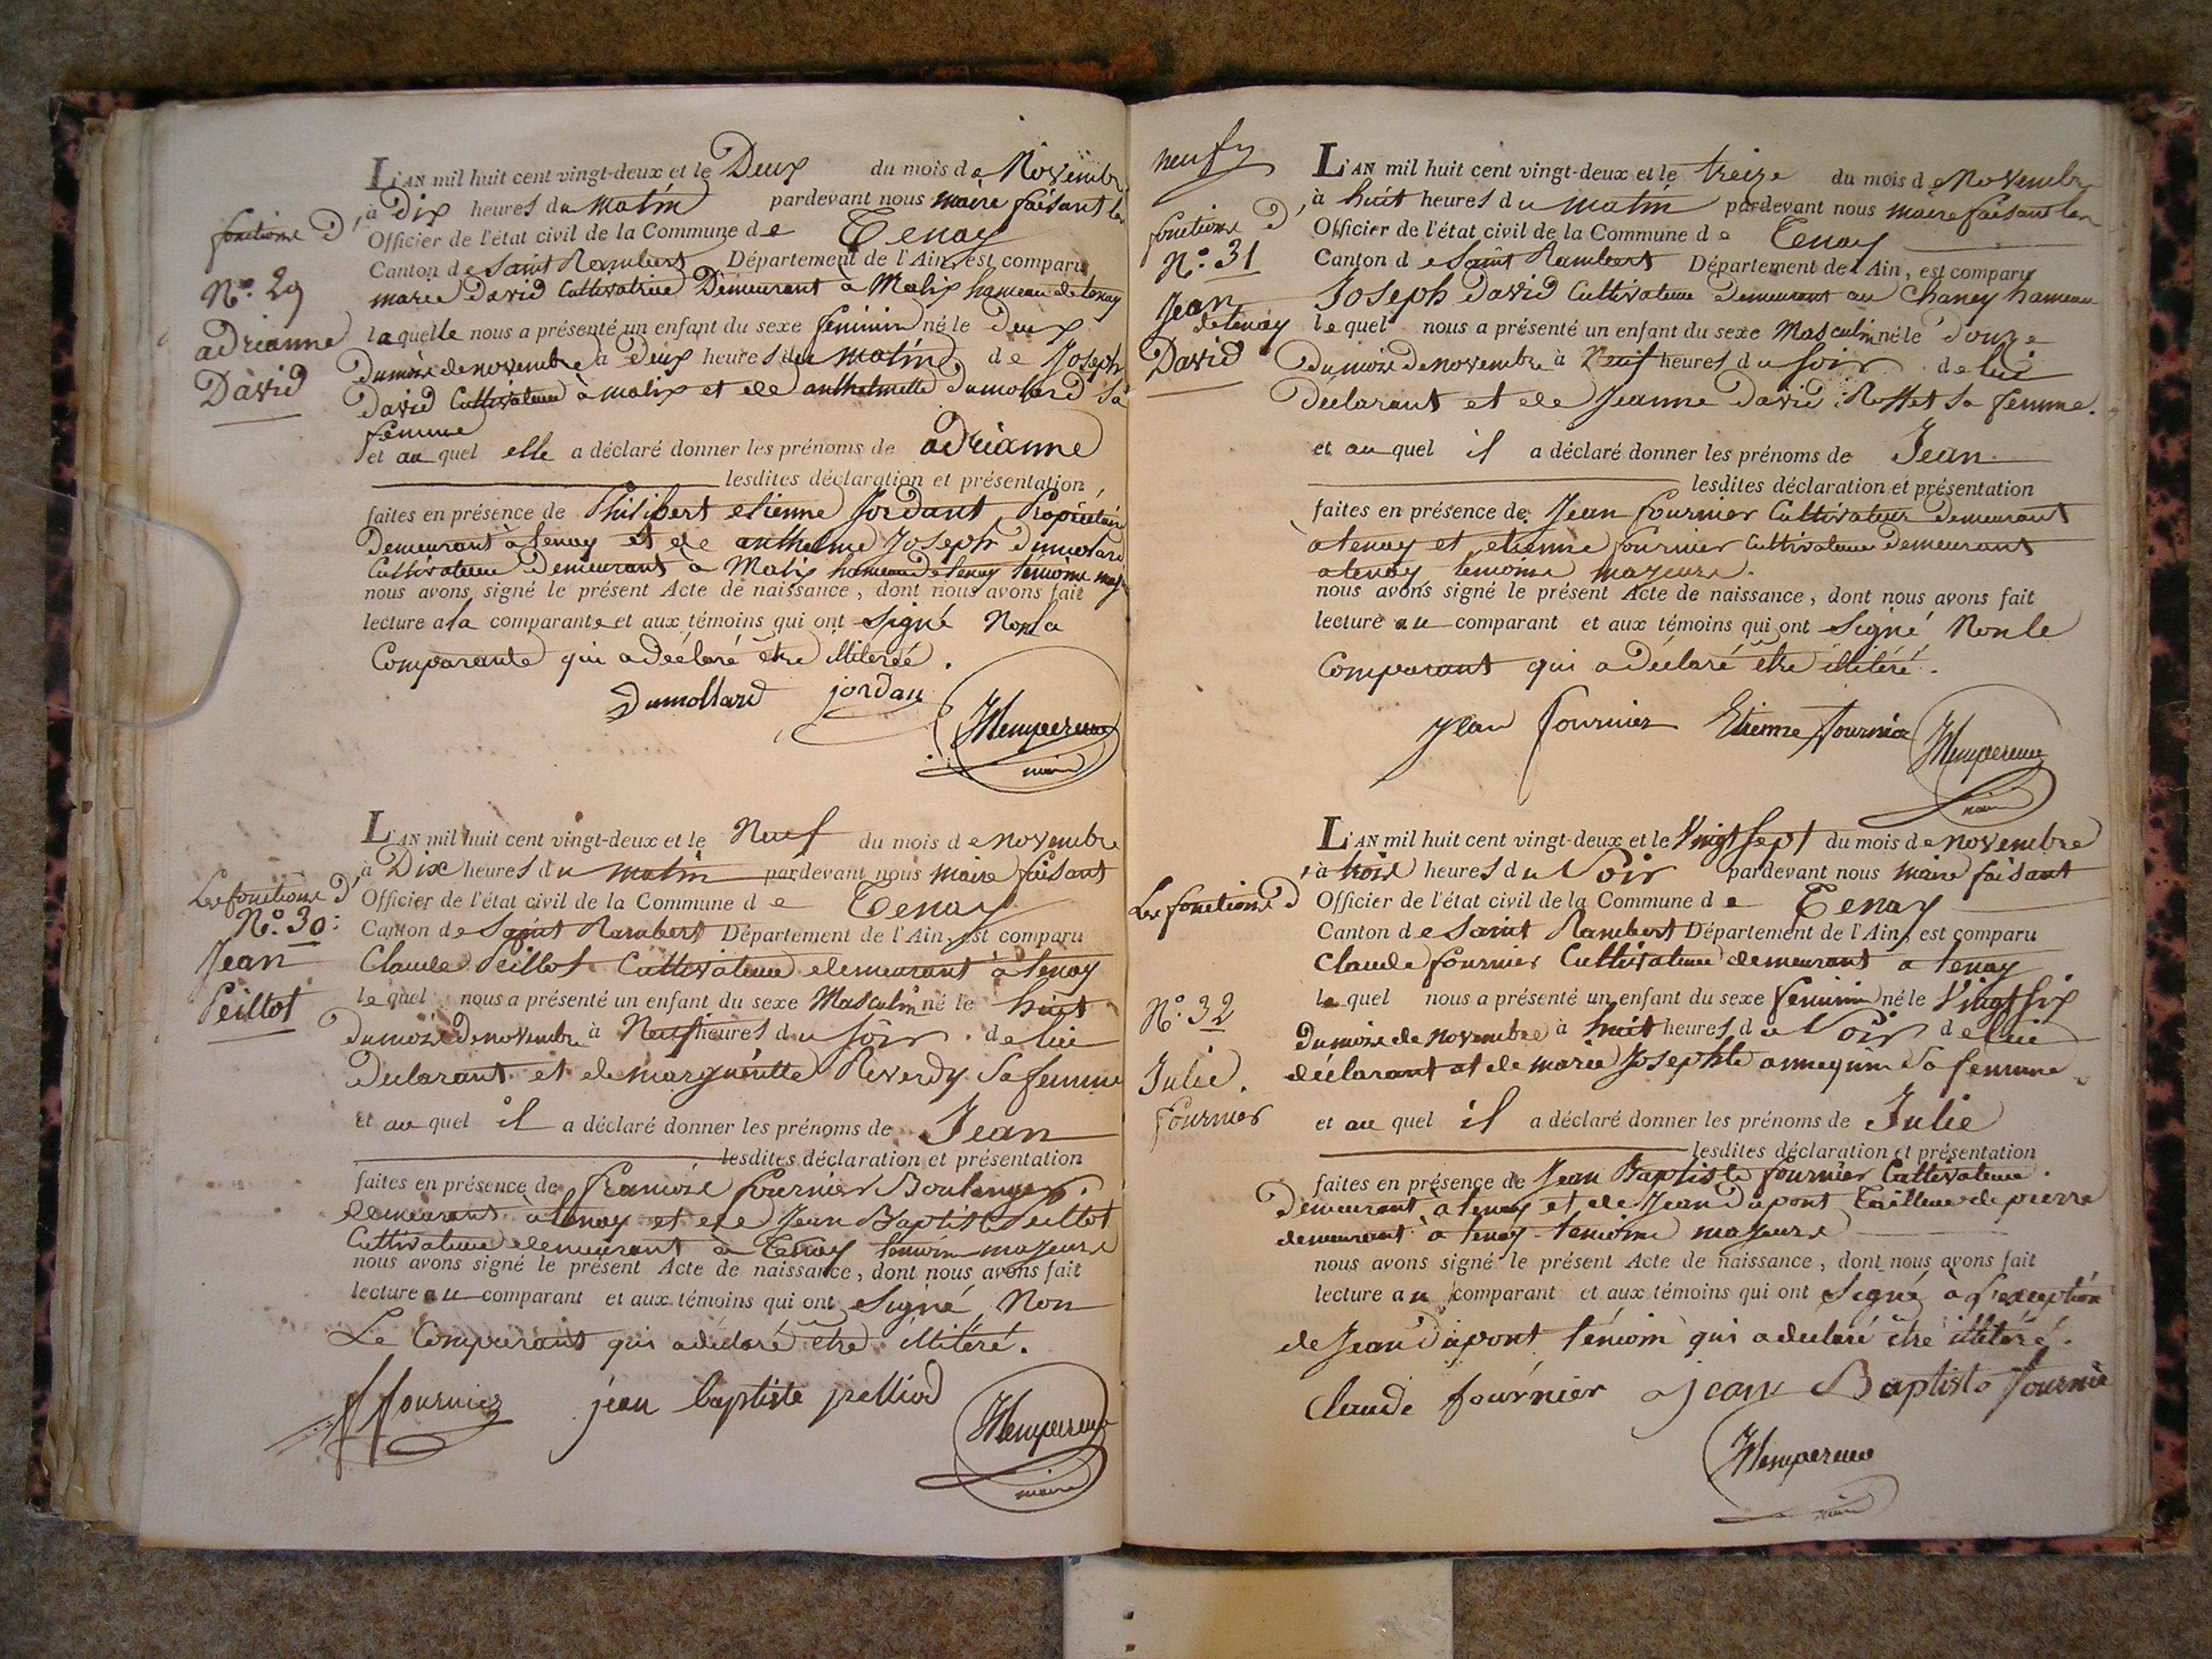 L'AN mil huit cent vingt-deux et le Deux du mois de Novembre
à Dix heures du matin pardevant nous maire faisant les
fonctions d'
Officier de l'état civil de la Commune de Tenay
Canton de Saint Rambert Département de l'Ain, est comparu
N.º 29
marie David Cultivatrice Demeurant à Malix hameau de tenay
adrianne
laquelle nous a présenté un enfant du sexe feminin né le deux
David
Dumois de novembre à Deux heures du matin de Joseph
David Cultivateur à malix et de anthelmette Dumolard Sa
femme
et au quel elle a déclaré donner les prénoms de adrianne
lesdites déclaration et présentation
faites en présence de Philibert etienne Jordant Propriétaire
Demeurant à tenay et de anthelme Joseph Dumolard
Cultivateur Demeurant à Malix hameau de tenay temoins
nous avons signé le présent Acte de naissance, dont nous avons fait
lecture a la comparante et aux témoins qui ont Signé Non la
Comparante qui a déclaré etre illiterée.
Dumollard jordan
maire
L'AN mil huit cent vingt-deux et le Neuf du mois de novembre
à Dix heures du matin pardevant nous maire faisant
Les fonctions d'
Officier de l'état civil de la Commune de Tenay
N.º 30
Canton de Saint Rambert Département de l'Ain, est comparu
Jean
Claude Peillot Cultivateur demeurant à tenay
Peillot
le quel nous a présenté un enfant du sexe Masculin né le huit
Dumois Denovembre à Neuf heures du soir de lui
Declarant et de marguéritte Reverdy Sa femme
et au quel il a déclaré donner les prénoms de Jean
lesdites déclaration et présentation
faites en présence de francois fournier Boulanger
demeurant à tenay et de Jean Baptiste Peillot
Cultivateur demeurant à Tenay temoins majeurs
nous avons signé le présent Acte de naissance, dont nous avons fait
lecture au comparant et aux témoins qui ont Signé, Non
Le Comparant qui a déclaré etre illitéré.
fournier jean baptiste pelliod
maire
L'AN mil huit cent vingt-deux et le treize du mois de Novembre
à huit heures du matin pardevant nous maire faisant les
fonctions d'
Officier de l'état civil de la Commune de Tenay
N.º 31
Canton de Saint Rambert Département de l'Ain, est comparu
Jean
Joseph David Cultivateur Demeurant au Chaney hameau
de tenay
le quel nous a présenté un enfant du sexe Masculin né le Douze
David
Dumois Denovembre à Neuf heures du soir de lui
Declarant et de Jeanne David Rostet Sa femme.
et au quel il a déclaré donner les prénoms de Jean
lesdites déclaration et présentation
faites en présence de Jean fournier Cultivateur Demeurant
à tenay et etienne fournier Cultivateur Demeurant
a tenay temoins majeurs.
nous avons signé le présent Acte de naissance, dont nous avons fait
lecture au comparant et aux témoins qui ont Signé Non le
Comparant qui a déclaré etre illitéré.
Jean fournier Etienne fournier
maire
L'AN mil huit cent vingt-deux et le Vingt Sept du mois de novembre
à trois heures du Soir pardevant nous maire faisant
Les fonctions d'
Officier de l'état civil de la Commune de Tenay
Canton de Saint Rambert Département de l'Ain, est comparu
Claude fournier Cultivateur demeurant a tenay
N.º 32
le quel nous a présenté un enfant du sexe feminin né le Vingt Six
Dumois de novembre à huit heures du Soir de lui
Julie.
déclarant et de marie Josephte annequin Sa femme
fournier
et au quel il a déclaré donner les prénoms de Julie
lesdites déclaration et présentation
faites en présence de Jean Baptiste fournier Cultivateur
Demeurant à tenay et de Jean Dupont Tailleur de pierre
demeurant à tenay temoins majeurs
nous avons signé le présent Acte de naissance, dont nous avons fait
lecture au comparant et aux témoins qui ont Signé à l'exception
de Jean Dupont témoin qui a declaré etre illitéré.
Claude fournier jean Baptiste fournier
maire